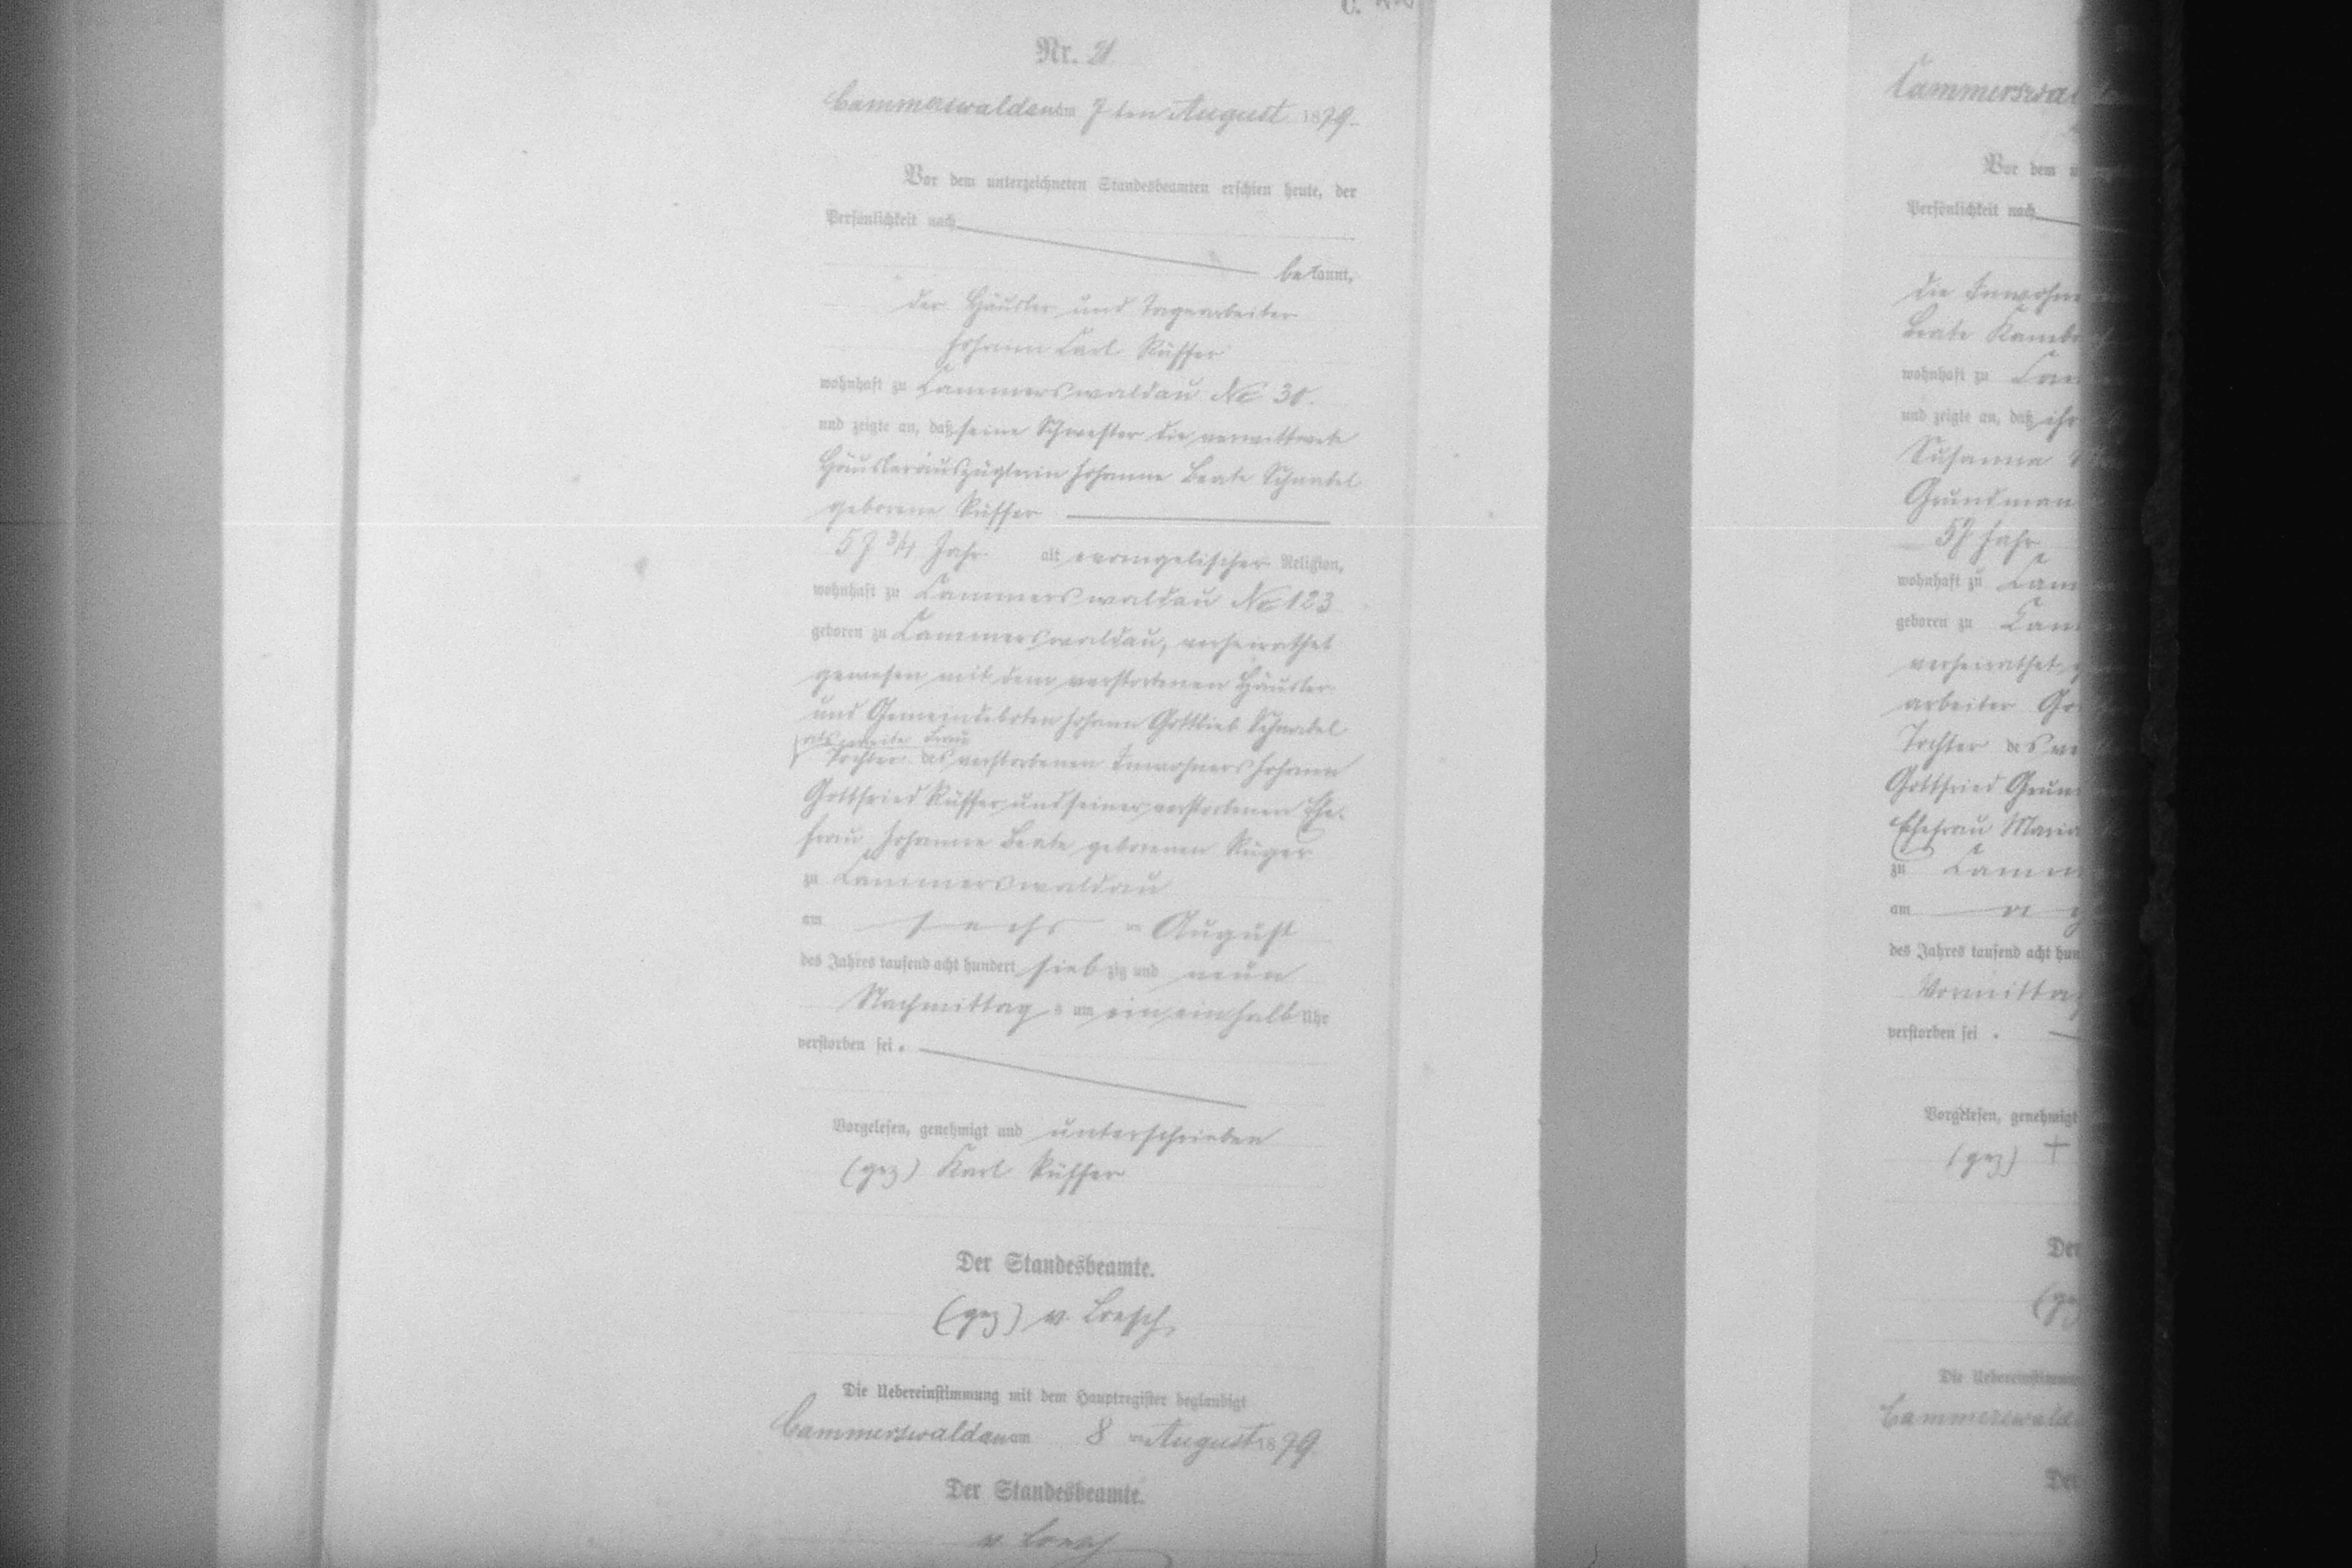 C.
Nr. 21
Cammerswaldau am 7ten August 1879.
Vor dem unterzeichneten Standesbeamten erschien heute, der
Persönlichkeit nach
bekannt,
der Häusler und Tagearbeiter
Johann Carl Rüffer
wohnhaft zu Cammerswaldau No 30.
und zeigte an, daß seine Schwester die verwittwete
Häuslerauszüglerin Johanne Beate Schnabel
geborene Rüffer
57 3/4 Jahr alt evangelischer Religion,
wohnhaft zu Cammerswaldau No 123
geboren zu Cammerswaldau, verheirathet
gewesen mit dem verstorbenen Häusler
und Gemeindeboten Johann Gottlieb Schnabel
als zweite Frau
Tochter des verstorbenen Inwohners Johann
Gottfried Rüffer und seiner verstorbenen Ehe-
frau Johanne Beate geborenen Rüger
zu Cammerswaldau
am sechs ten August
des Jahres tausend acht hundert siebzig und neun
Nachmittag s um ein einhalb Uhr
verstorben sei.
Vorgelesen, genehmigt und unterschrieben
(gez) Karl Rüffer
Der Standesbeamte.
(gez) v. Loesch
Die Uebereinstimmung mit dem Hauptregister beglaubigt
Cammerswaldau am 8 ten August 1879
Der Standesbeamte.
v. Loesch
Cammerswal
Vor dem
Persönlichkeit nach
die Inwohner
Beate
wohnhaft zu Cam
und zeigte an, daß ihr
Susanna
Grundman
57 Jahr
wohnhaft zu Cam
geboren zu Cam
verheirathet
arbeiter Go
Tochter des ve
Gottfried Grun
Ehefrau Maria
zu Camm
am
des Jahres tausend acht hun
Vormittag
verstorben sei.
Vorgelesen, genehmigt
(gez) +
Der
(gez
Die Uebereinstimmung
Cammerswald
Der